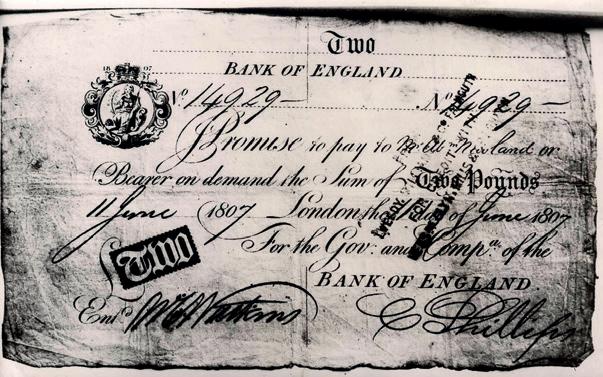 Two
BANK OF ENGLAND
18 07
No. 14929— No. 14929—
I Promise to pay to Mr. Newland or
Bearer on demand the Sum of Two Pounds
11 June 1807 London the day of June 1807
For the Gov: and Compa. of the
£ Two
BANK OF ENGLAND
Entd.
C Phillips